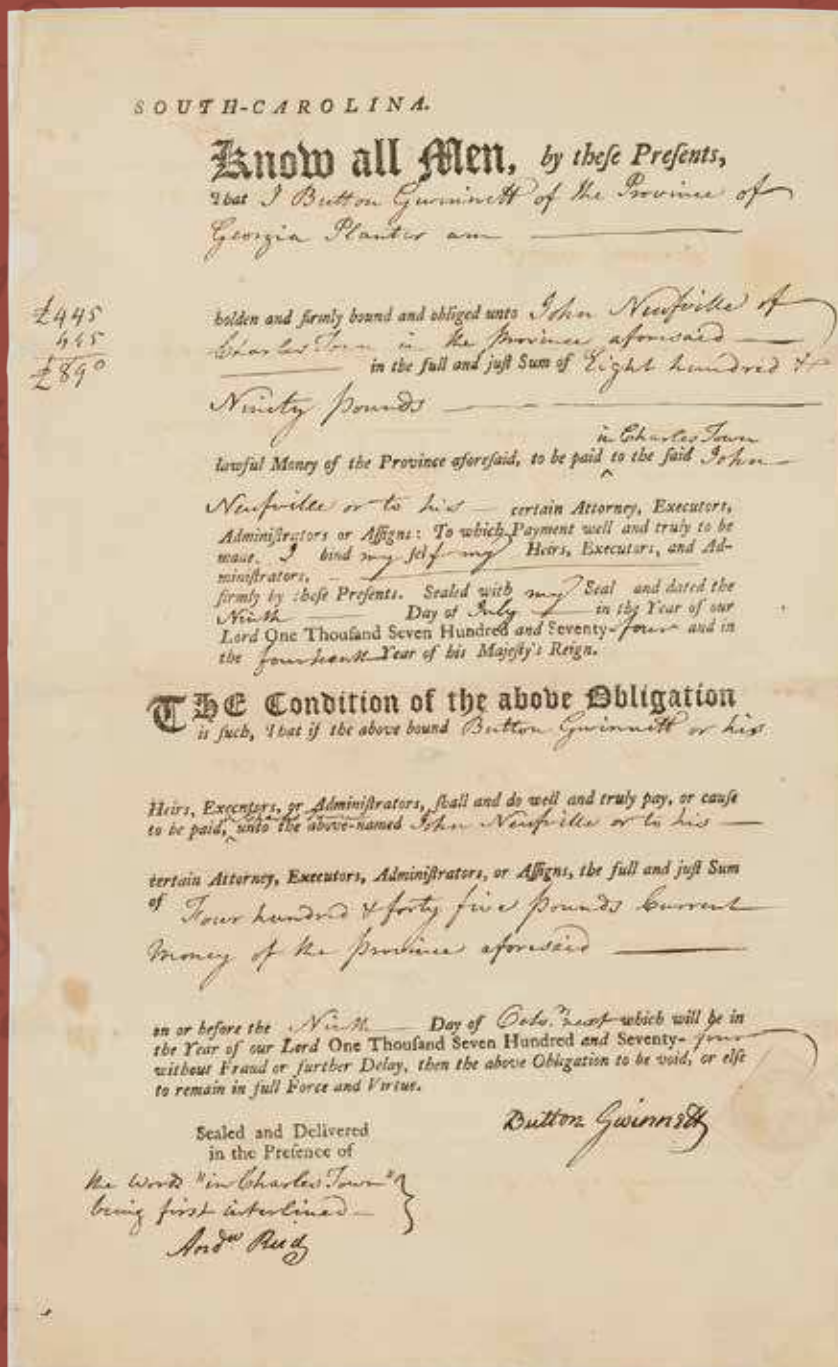 SOUTH-CAROLINA.
Know all Men, by theſe Preſents,
That I Button Gwinnett of the Province of
Georgia Planter am
£445
445
£890
holden and firmly bound and obliged unto John Neufville of
Charles Town in the Province aforesaid
in the full and juſt Sum of Eight hundred &
Ninety Pounds
in Charles Town
lawful Money of the Province aforeſaid, to be paid ‸ to the ſaid John
Neufville or to his certain Attorney, Executors,
Adminiſtrators or Aſſigns: To which Payment well and truly to be
made, I bind my ſelf my Heirs, Executors, and Ad-
miniſtrators,
firmly by theſe Preſents. Sealed with my Seal and dated the
Ninth Day of July in the Year of our
Lord One Thouſand Seven Hundred and Seventy-four and in
the fourteenth Year of his Majeſty's Reign.
THE Condition of the above Obligation
is ſuch, That if the above bound Button Gwinnett or his
Heirs, Executors, or Adminiſtrators, ſhall and do well and truly pay, or cauſe
to be paid, ‸ unto the above-named John Neufville or to his
certain Attorney, Executors, Adminiſtrators, or Aſſigns, the full and juſt Sum
of Four hundred & forty five Pounds Current
Money of the Province aforesaid
on or before the Ninth Day of Octo.r next which will be in
the Year of our Lord One Thouſand Seven Hundred and Seventy-four
without Fraud or further Delay, then the above Obligation to be void, or elſe
to remain in full Force and Virtue.
Button Gwinnett
Sealed and Delivered
in the Preſence of
the Words "in Charles Town"
being first interlined
And.w Reid